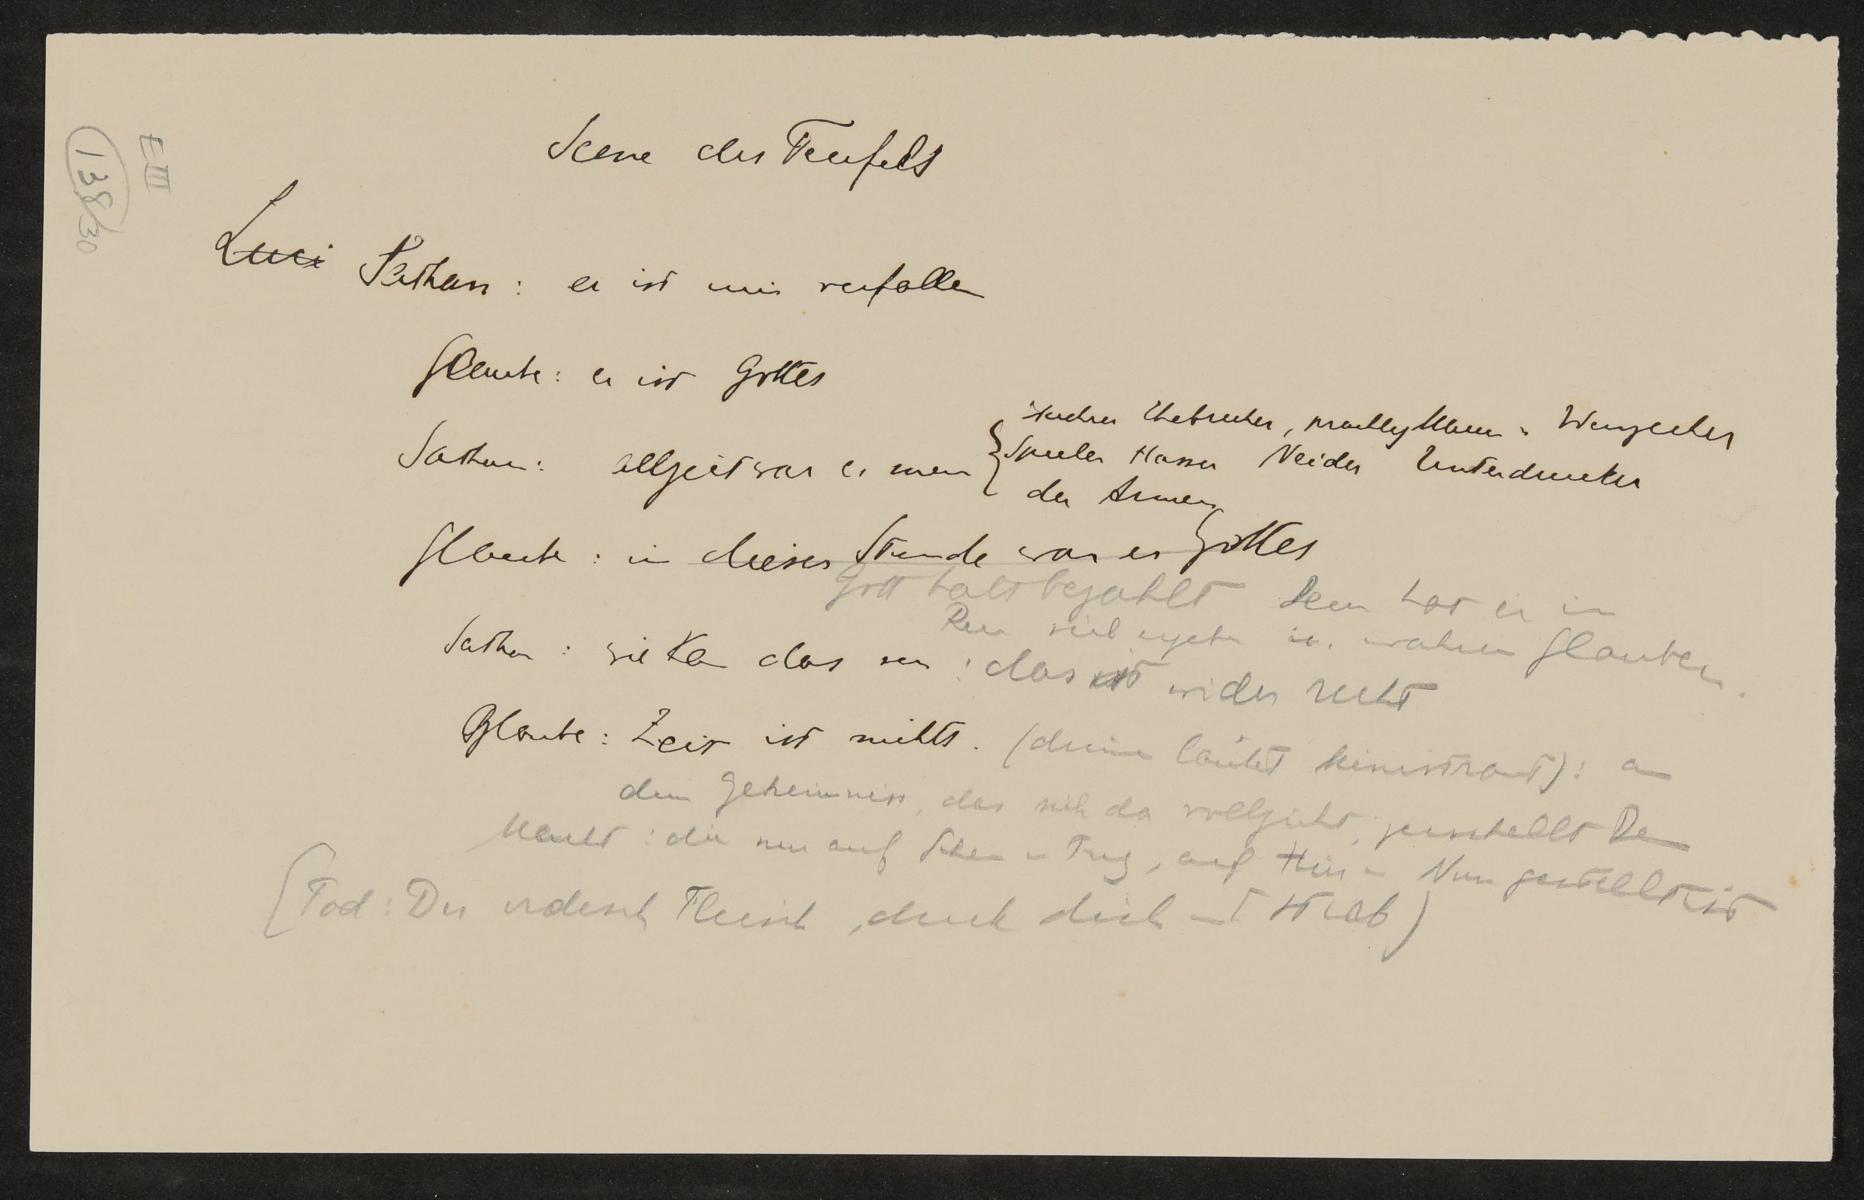 E III
138/30
Scene des Teufels
Luci Sathan: er ist mir verfallen
Glaube: er ist Gottes
Sathan: allzeit war er mein { Hurer Ehebrecher, Wuecher
Spieler Hasser Neider Unterdrucker
der Armen
Glaube: in dieser Stunde war er Gottes
Gott hats bezahlt Dem hat er in
Reu sich ergeben in. wahren Glauben.
Sathan: wie kan das sein: das ist wider recht
Glaube: Zeit ist nichts. (drinnen läutet Ministrant): an
dem Geheimniss, das sich da vollzieht, zerschellt Deine
Macht: die nur auf Schein u Trug, auf Hier u Nun gestellt ist
(Tod: Du irdisch Fleisch, duck dich und stirb)